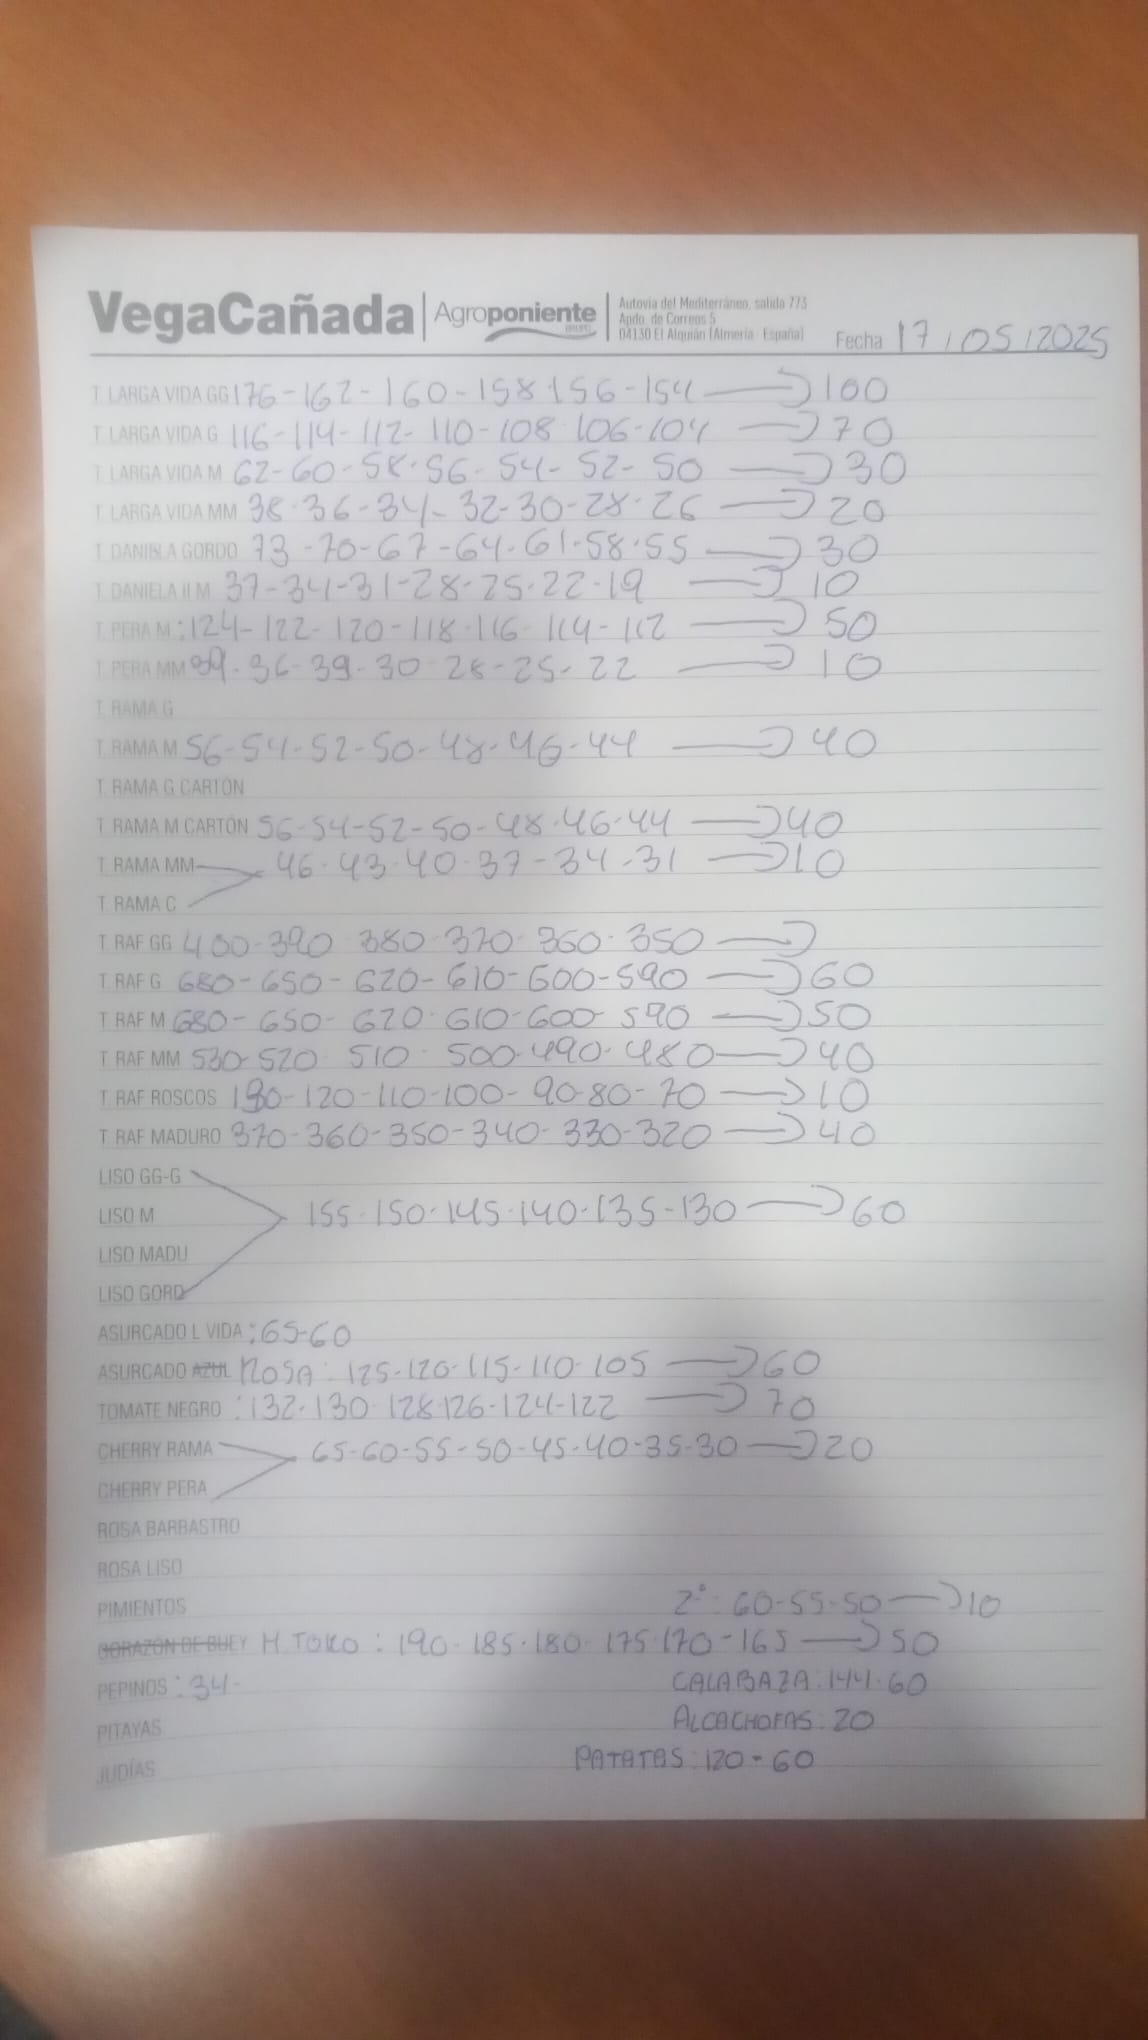 VegaCañada Agroponiente GRUPO
Autovía del Mediterráneo, salida 773
Apdo. de Correos 5
04130 El Alquián (Almería - España)
Fecha 17/05/2025
T. LARGA VIDA GG 176-162-160-158-156-154 → 100
T. LARGA VIDA G 116-114-112-110-108-106-104 → 70
T. LARGA VIDA M 62-60-58-56-54-52-50 → 30
T. LARGA VIDA MM 38-36-34-32-30-28-26 → 20
T. DANIELA GORDO 73-70-67-64-61-58-55 → 30
T. DANIELA II M 37-34-31-28-25-22-19 → 10
T. PERA M: 124-122-120-118-116-114-112 → 50
T. PERA MM 39-36-39-30-28-25-22 → 10
T. RAMA G
T. RAMA M 56-54-52-50-48-46-44 → 40
T. RAMA G CARTÓN
T. RAMA M CARTÓN 56-54-52-50-48-46-44 → 40
T. RAMA MM 46-43-40-37-34-31 → 10
T. RAMA C
T. RAF GG 400-390-380-370-360-350 →
T. RAF G 680-650-620-610-600-590 → 60
T. RAF M 680-650-620-610-600-590 → 50
T. RAF MM 530-520-510-500-490-480 → 40
T. RAF ROSCOS 130-120-110-100-90-80-70 → 10
T. RAF MADURO 370-360-350-340-330-320 → 40
LISO GG-G
LISO M 155-150-145-140-135-130 → 60
LISO MADU
LISO GORD
ASURCADO L VIDA: 65-60
ASURCADO AZUL ROSA: 125-120-115-110-105 → 60
TOMATE NEGRO: 132-130-128-126-124-122 → 70
CHERRY RAMA 65-60-55-50-45-40-35-30 → 20
CHERRY PERA
ROSA BARBASTRO
ROSA LISO
PIMIENTOS 2ª: 60-55-50 → 10
CORAZÓN DE BUEY M. TORO: 190-185-180-175-170-165 → 50
PEPINOS: 34- CALABAZA: 144-60
PITAYAS ALCACHOFAS: 20
JUDÍAS PATATAS: 120-60